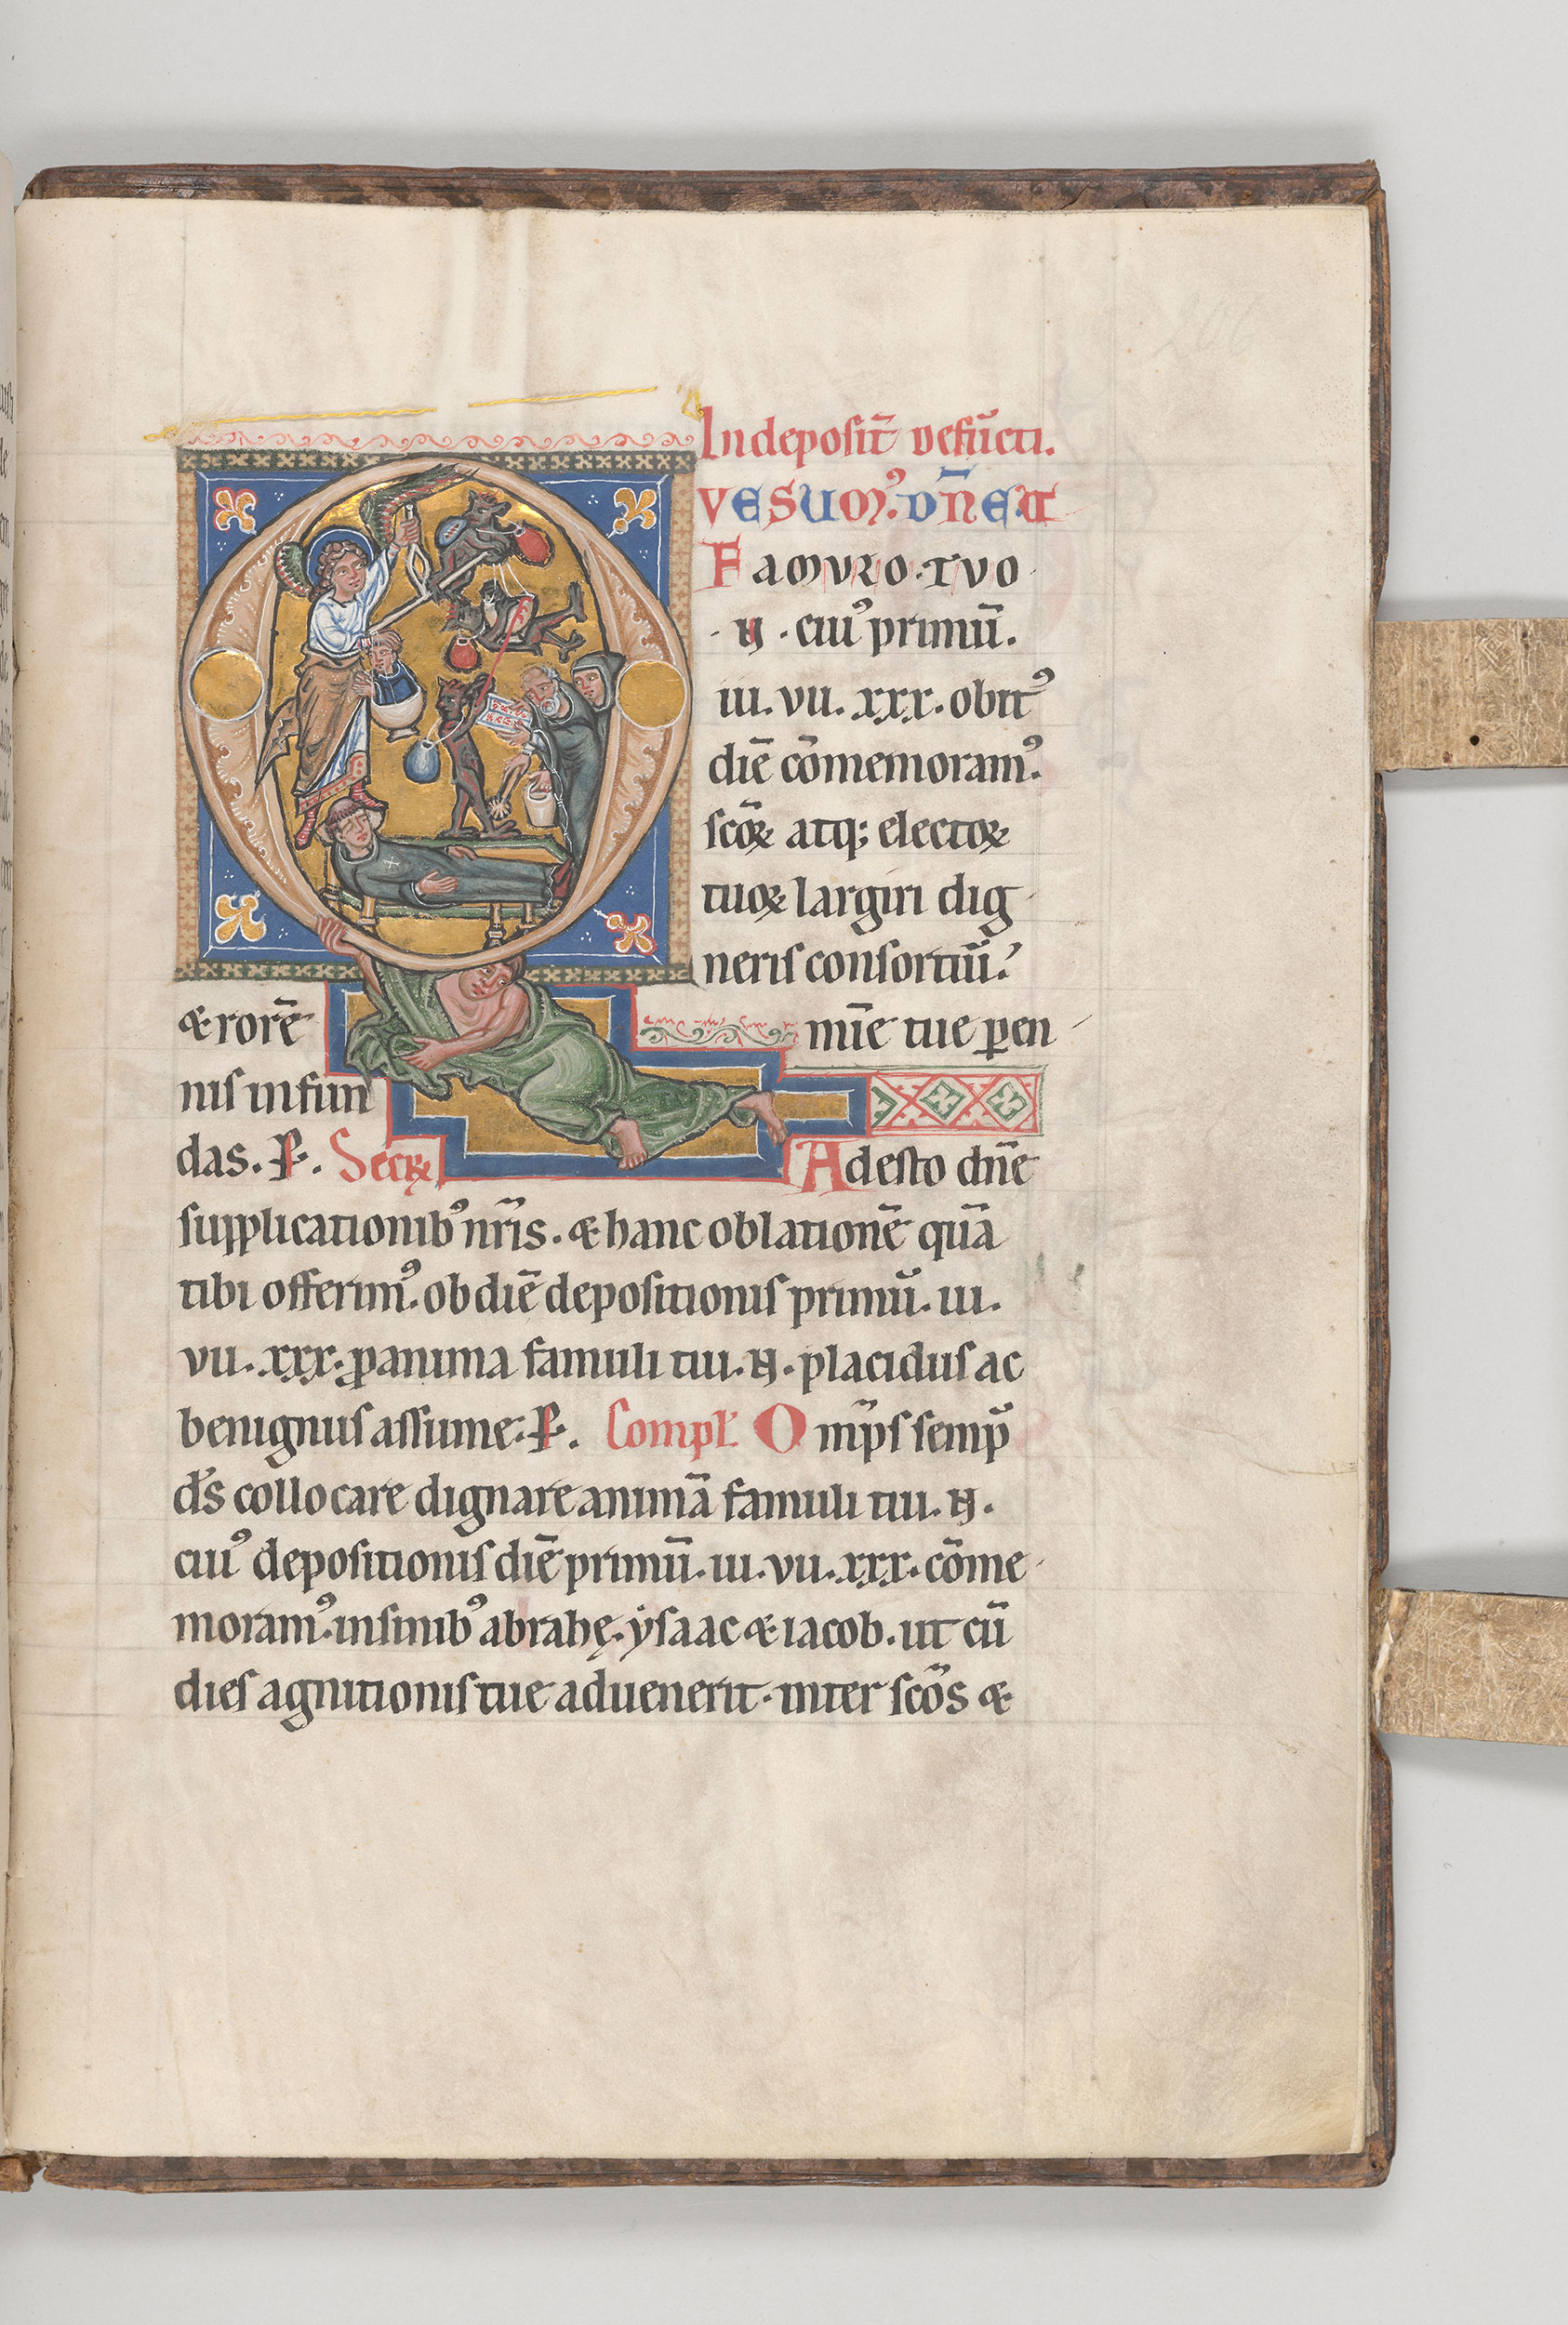 In deposit̄ defūcti.
VESUM9. DN̄E. A
FAMULO. TUO
. N . cui9 primū.
iii. vii. xxx. obit9
diē cōmemoram9.
scōꝝ atq; electoꝝ
tuoꝝ largiri dig
neris consortiū.
& rorē mīe tue ꝑen
nis infun
das. P. Secꝝ Adesto dn̄e
supplicationib9 nr̄is. & hanc oblationē quā
tibi offerim9. ob diē depositionis primū. iii.
vii. xxx. ꝓ anima famuli tui. N. placidus ac
benignus assume. P. Compl̄. Omp̄s semꝑ
ds̄ collocare dignare animā famuli tui. N.
cui9 depositionis diē primū. iii. vii. xxx. cōme
moram9. in sinib9 abrahę. ẏsaac & iacob. ut cū
dies agnitionis tue aduenerit. inter scōs &
206